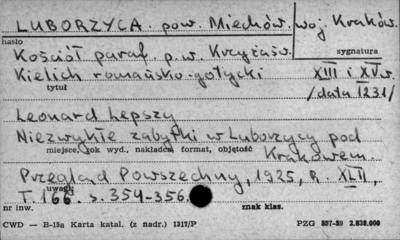 LUBORZYCA. pow. Miechów. woj. Kraków.
hasło
Kościół paraf. p.w. Krzyża św.
sygnatura
Kielich romańsko-gotycki XIII i XV w.
tytuł
/data 1231/
Leonard Lepszy
Niezwykłe zabytki w Luborzycy pod
miejsce, rok wyd., nakładca, format, objętość
Krakowem.
Przegląd Powszechny, 1925, R. XLII,
uwagi
T. 166. s. 354-356.
nr inw.
znak klas.
CWD — B-15a Karta katal. (z nadr.) 1317/P
PZG 557-59 2.838.000